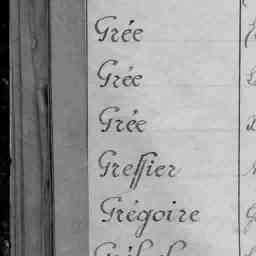 Grée
Grée
Grée
Greffier
Grégoire